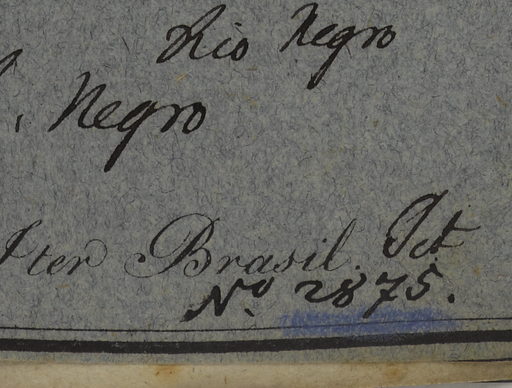 Rio Negro
Negro
Iter Brasil. Oct
No. 2875.